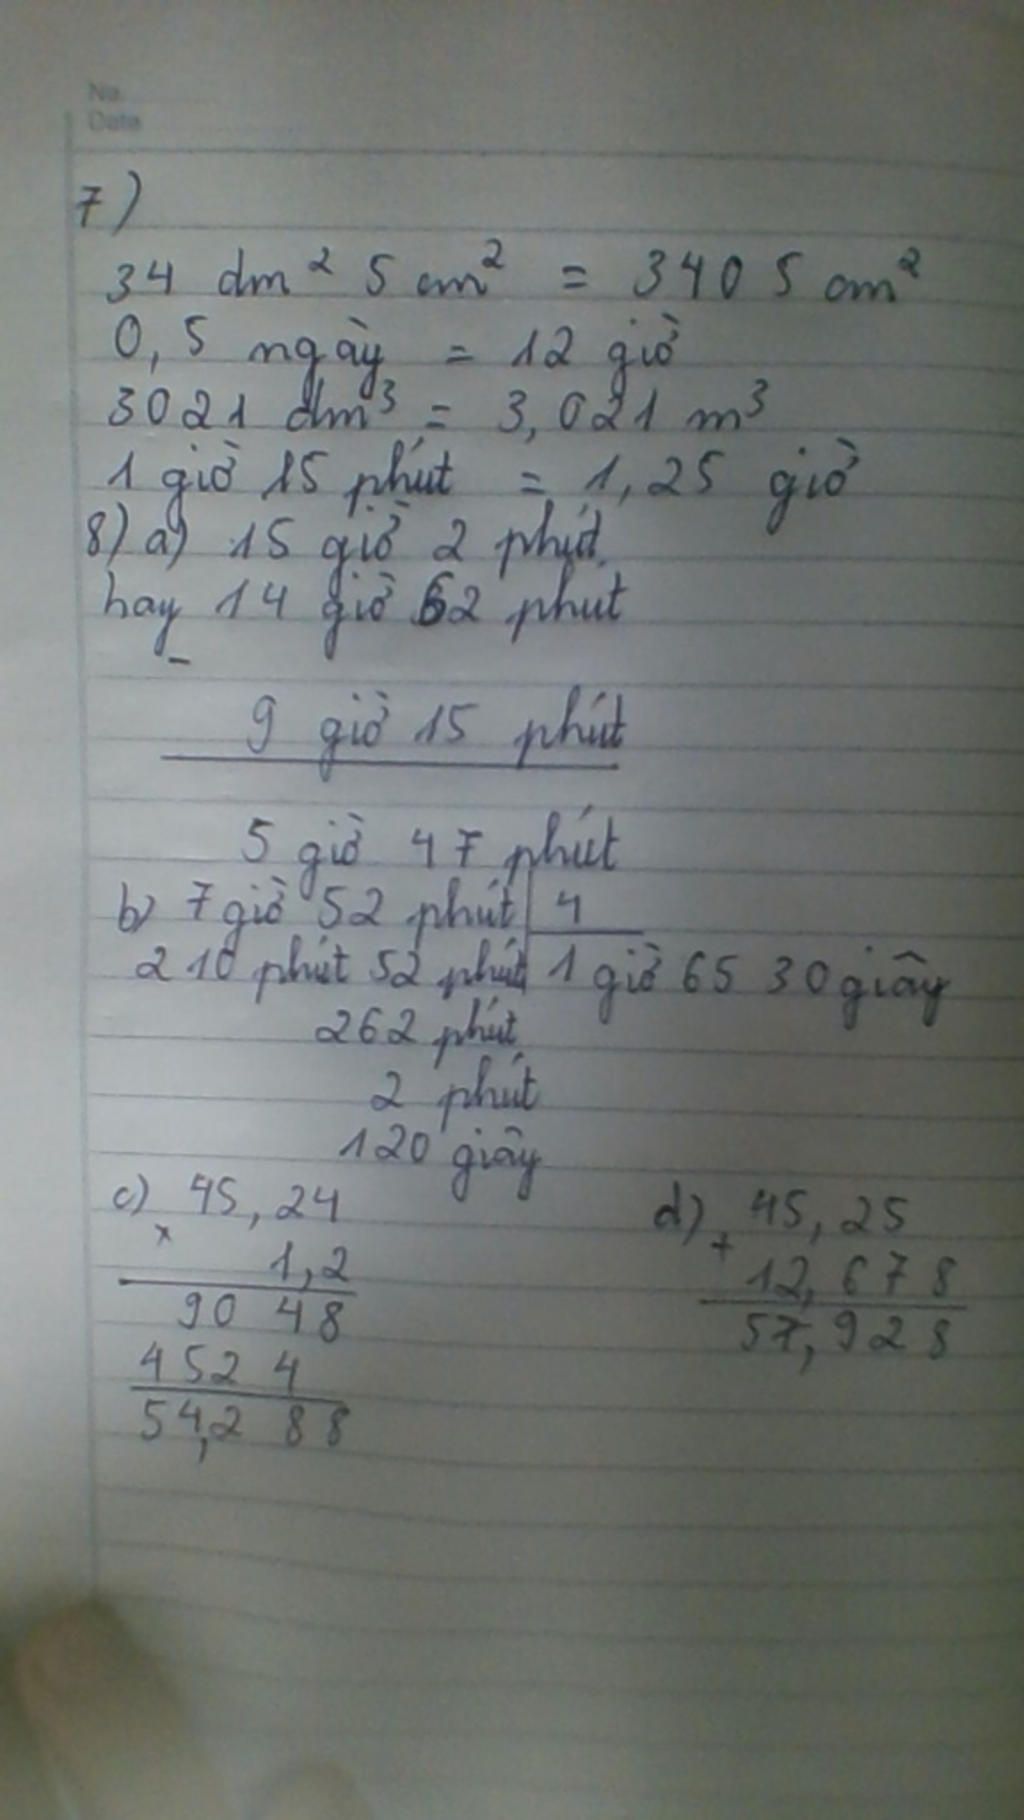 No.
Date
7)
34 dm² 5 cm² = 3405 cm²
0,5 ngày = 12 giờ
3021 dm³ = 3,021 m³
1 giờ 15 phút = 1,25 giờ
8) a) 15 giờ 2 phút
hay 14 giờ 62 phut
-
9 giờ 15 phút
5 giờ 47 phút
b) 7 giờ 52 phút 4
210 phút 52 phút 1 giờ 65 30 giây
262 phút
2 phút
120 giây
c) 45,24 d) 45,25
x 1,2 + 12,678
90 48 57,928
452 4
54,2 88